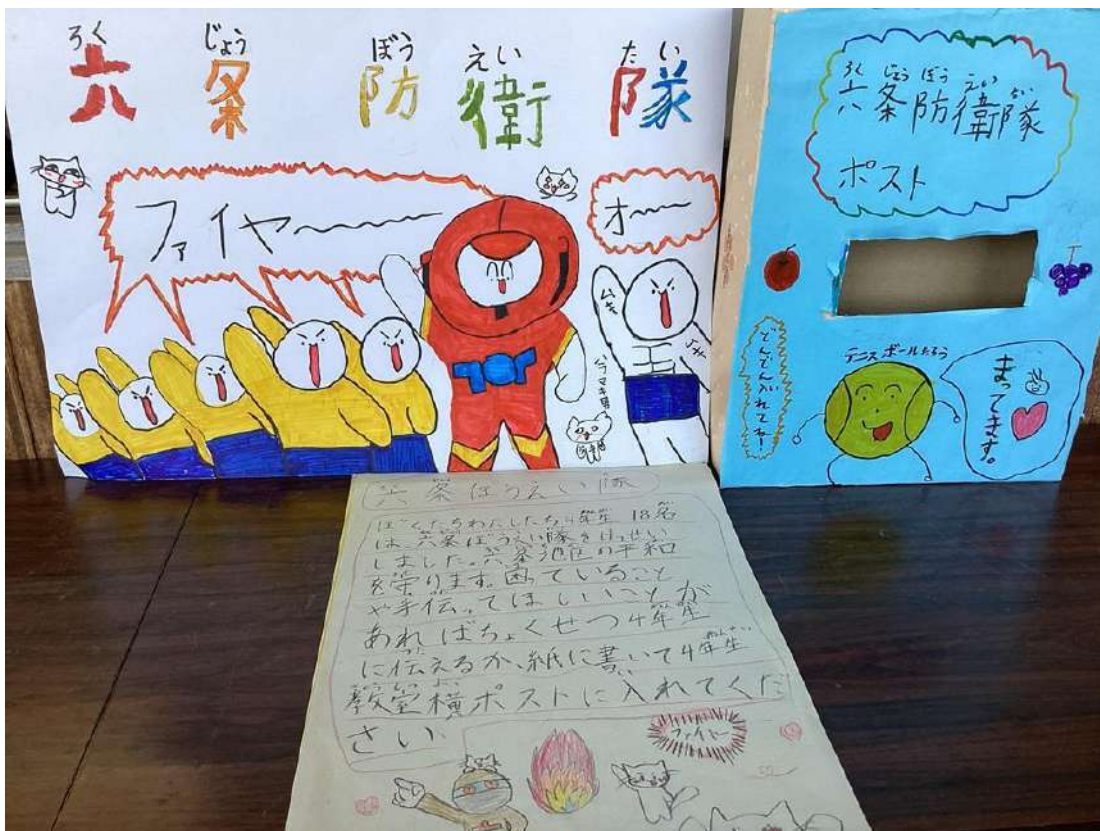 ろく じょう ぼう えい たい
六条防衛隊
ファイヤー
オー
ムキ
ムキ
ハラマキ男
ろく じょう ぼう えい たい
六条防衛隊
ポスト
どんどんいれてね！
テニスボールたろう
まってます。
六条ぼうえい隊
ぼくたちわたしたち4年生18名
は、六条ぼうえい隊をけっせい
しました。六条地区の平和
を守ります。困っていること
や手伝ってほしいことが
あればちょくせつ4年生
に伝えるか、紙に書いて4年生
教室横ポストに入れてくだ
さい。
ファイヤー